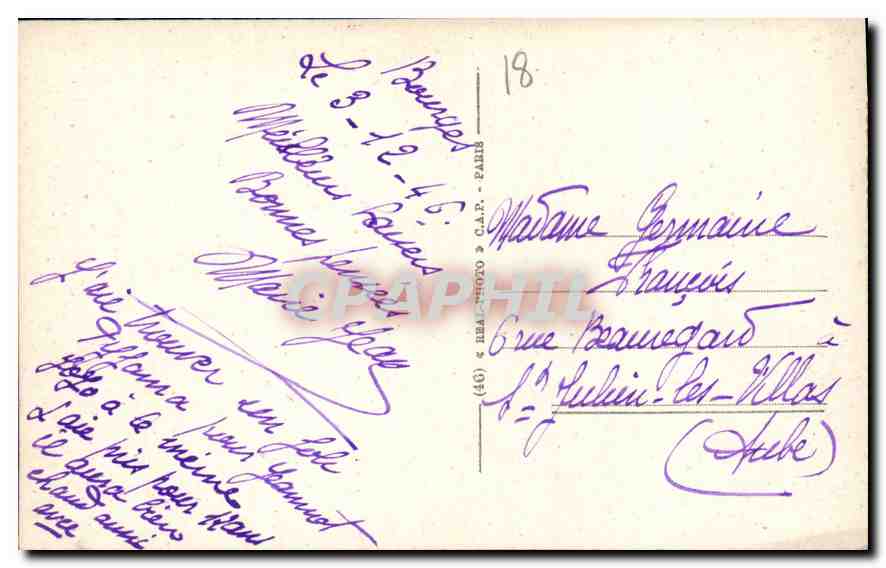 18
Bourges
Le 3-12-46.
Meilleurs
Bonnes pensées
Marie Jean
J'aie trouver un joli
pour Jeannot
Jojo à le même
L'aie pris pour
il aura bien
chaud aussi
avec
(46) « REAL-PHOTO » C.A.P. - PARIS
CPAPHIL.COM
Madame Germaine
François
6 rue Beauregard à
St Julien-les-Villas
(Aube)